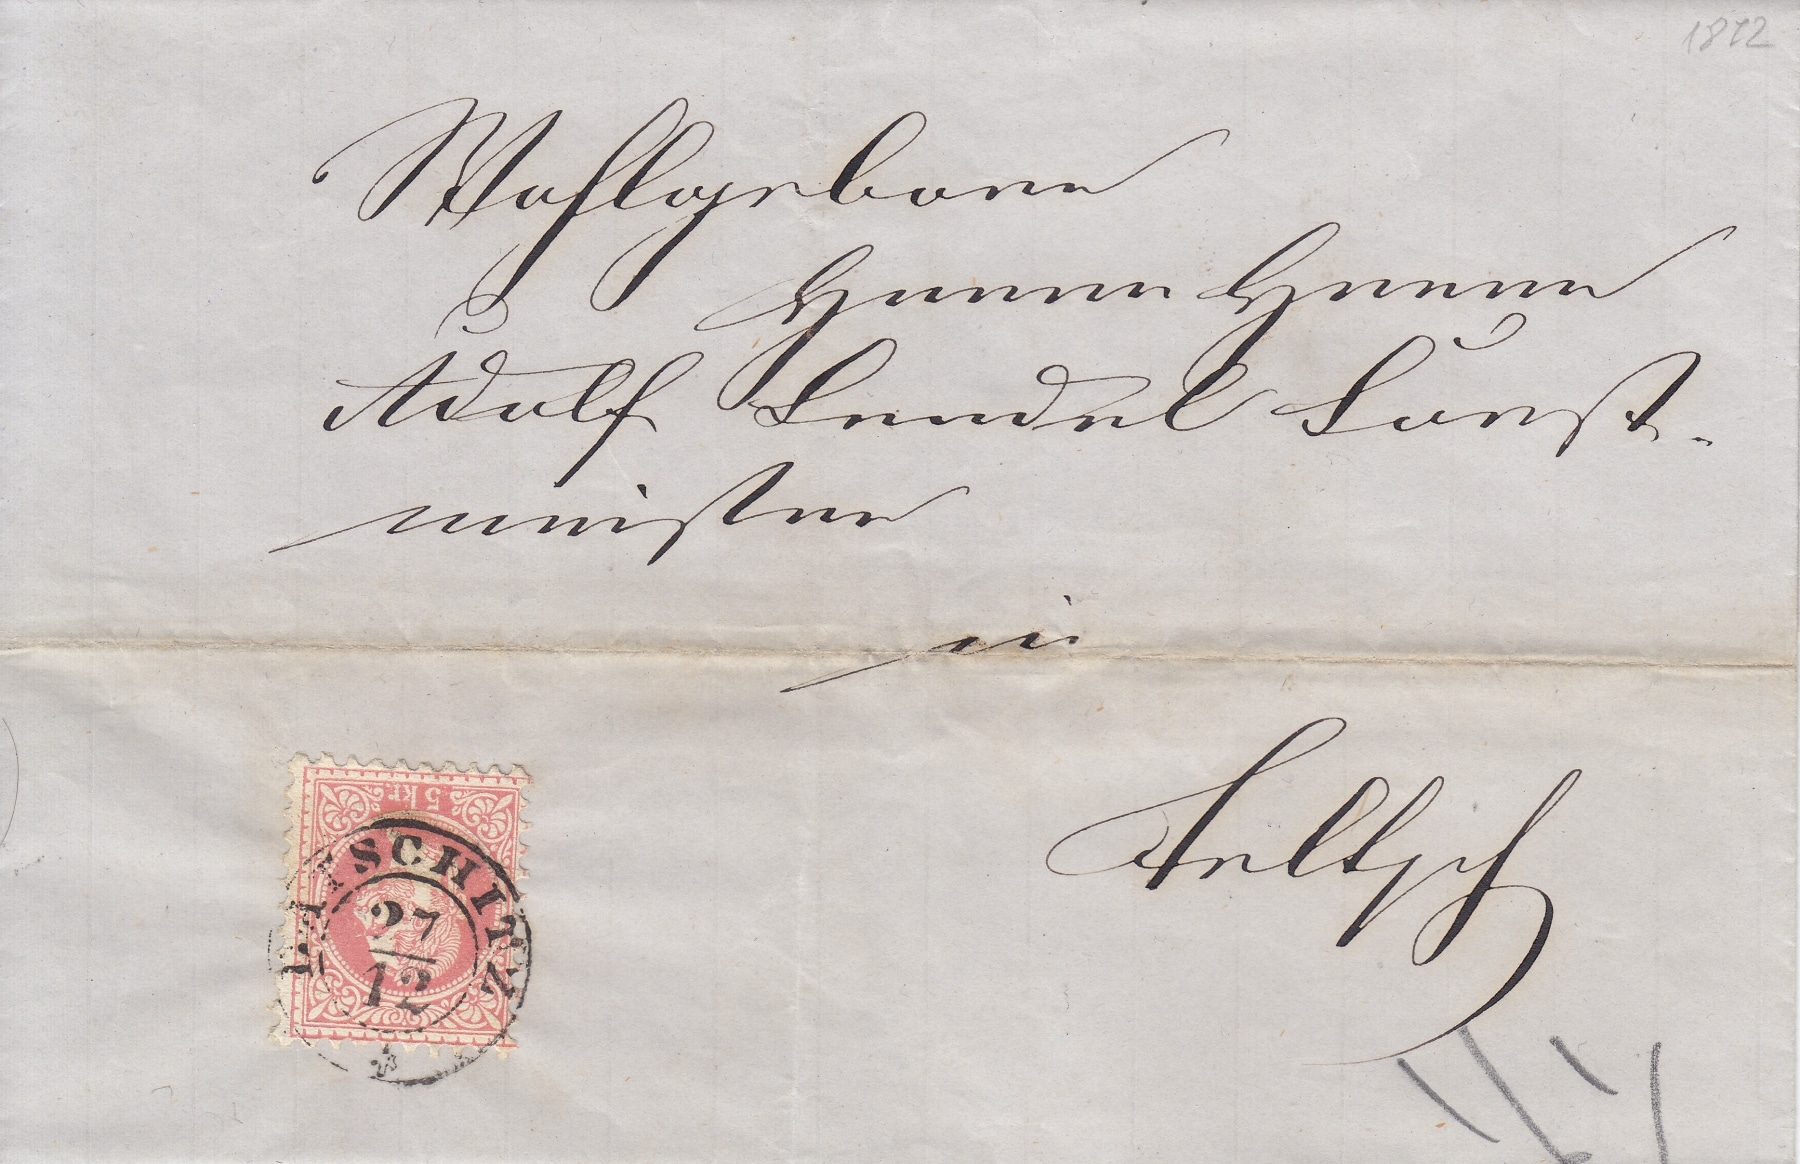 1872
Wohlgeboren
Herrn Herrn
Adolf Lendel Forst-
meister
in
Teltsch
5 kr.
LATSCHITZ
27
12